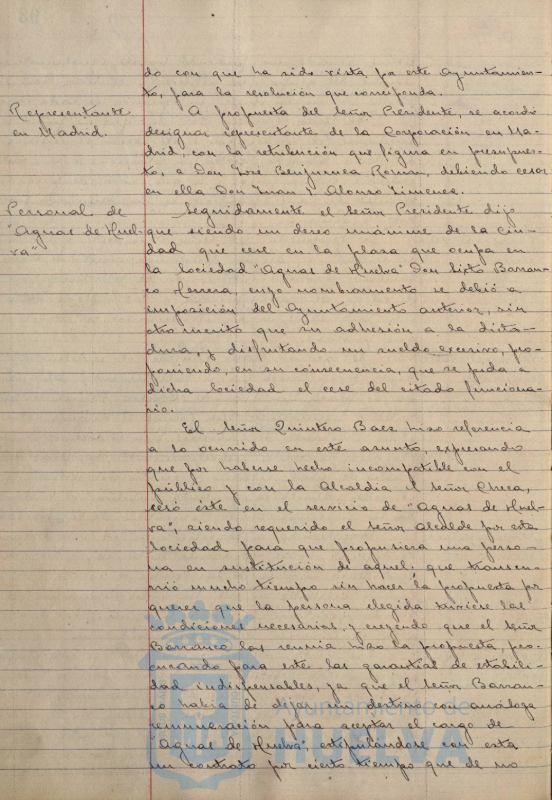 do con que ha sido vista por este Ayuntamien-
to, para la resolución que corresponda.
Representante
en Madrid.
A propuesta del Señor Presidente, se acordó
designar representante de la Corporación en Ma-
drid, con la retribución que figura en presupues-
to, a Don José Benjumea Roman, debiendo cesar
en ella Don Juan J. Alonso Jimenez.
Personal de
"Aguas de Huel-
va"
Seguidamente el Señor Presidente dijo
que siendo un deseo unánime de la ciu-
dad que cese en la plaza que ocupa en
la Sociedad "Aguas de Huelva" Don Sixto Barran-
co Herrera, cuyo nombramiento se debió a
imposición del Ayuntamiento anterior, sin
otro merito que su adhesión a la dicta-
dura, y disfrutando un sueldo excesivo, pro-
poniendo, en su consecuencia, que se pida a
dicha Sociedad el cese del citado funciona-
rio.
El Señor Quintero Baez hizo referencia
a lo ocurrido en este asunto, expresando
que por haberse hecho incompatible con el
público y con la Alcaldia el Señor Checa,
cesó éste en el servicio de "Aguas de Huel-
va", siendo requerido el Señor Alcalde por esta
Sociedad para que propusiera una perso-
na en sustitución de aquel; que transcu-
rrió mucho tiempo sin hacer la propuesta por
querer que la persona elegida tuviere las
condiciones necesarias, y creyendo que el Señor
Barranco las reunia hizo la propuesta, pro-
curando para este las garantias de estabili-
dad indispensables, ya que el Señor Barran-
co habia de dejar un destino con análoga
remuneración para aceptar el cargo de
"Aguas de Huelva", estipulandose con esta
un contrato por cierto tiempo que de no
Ayuntamiento de
HUELVA